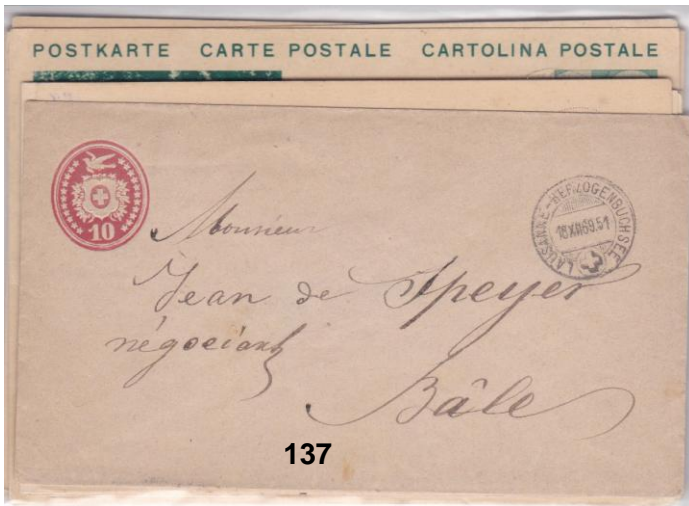 POSTKARTE CARTE POSTALE CARTOLINA POSTALE
10
LAUSANNE-HERZOGENBUCHSEE
16 XII 69.51
Monsieur
Jean de Speyer
négociant
Bâle
137